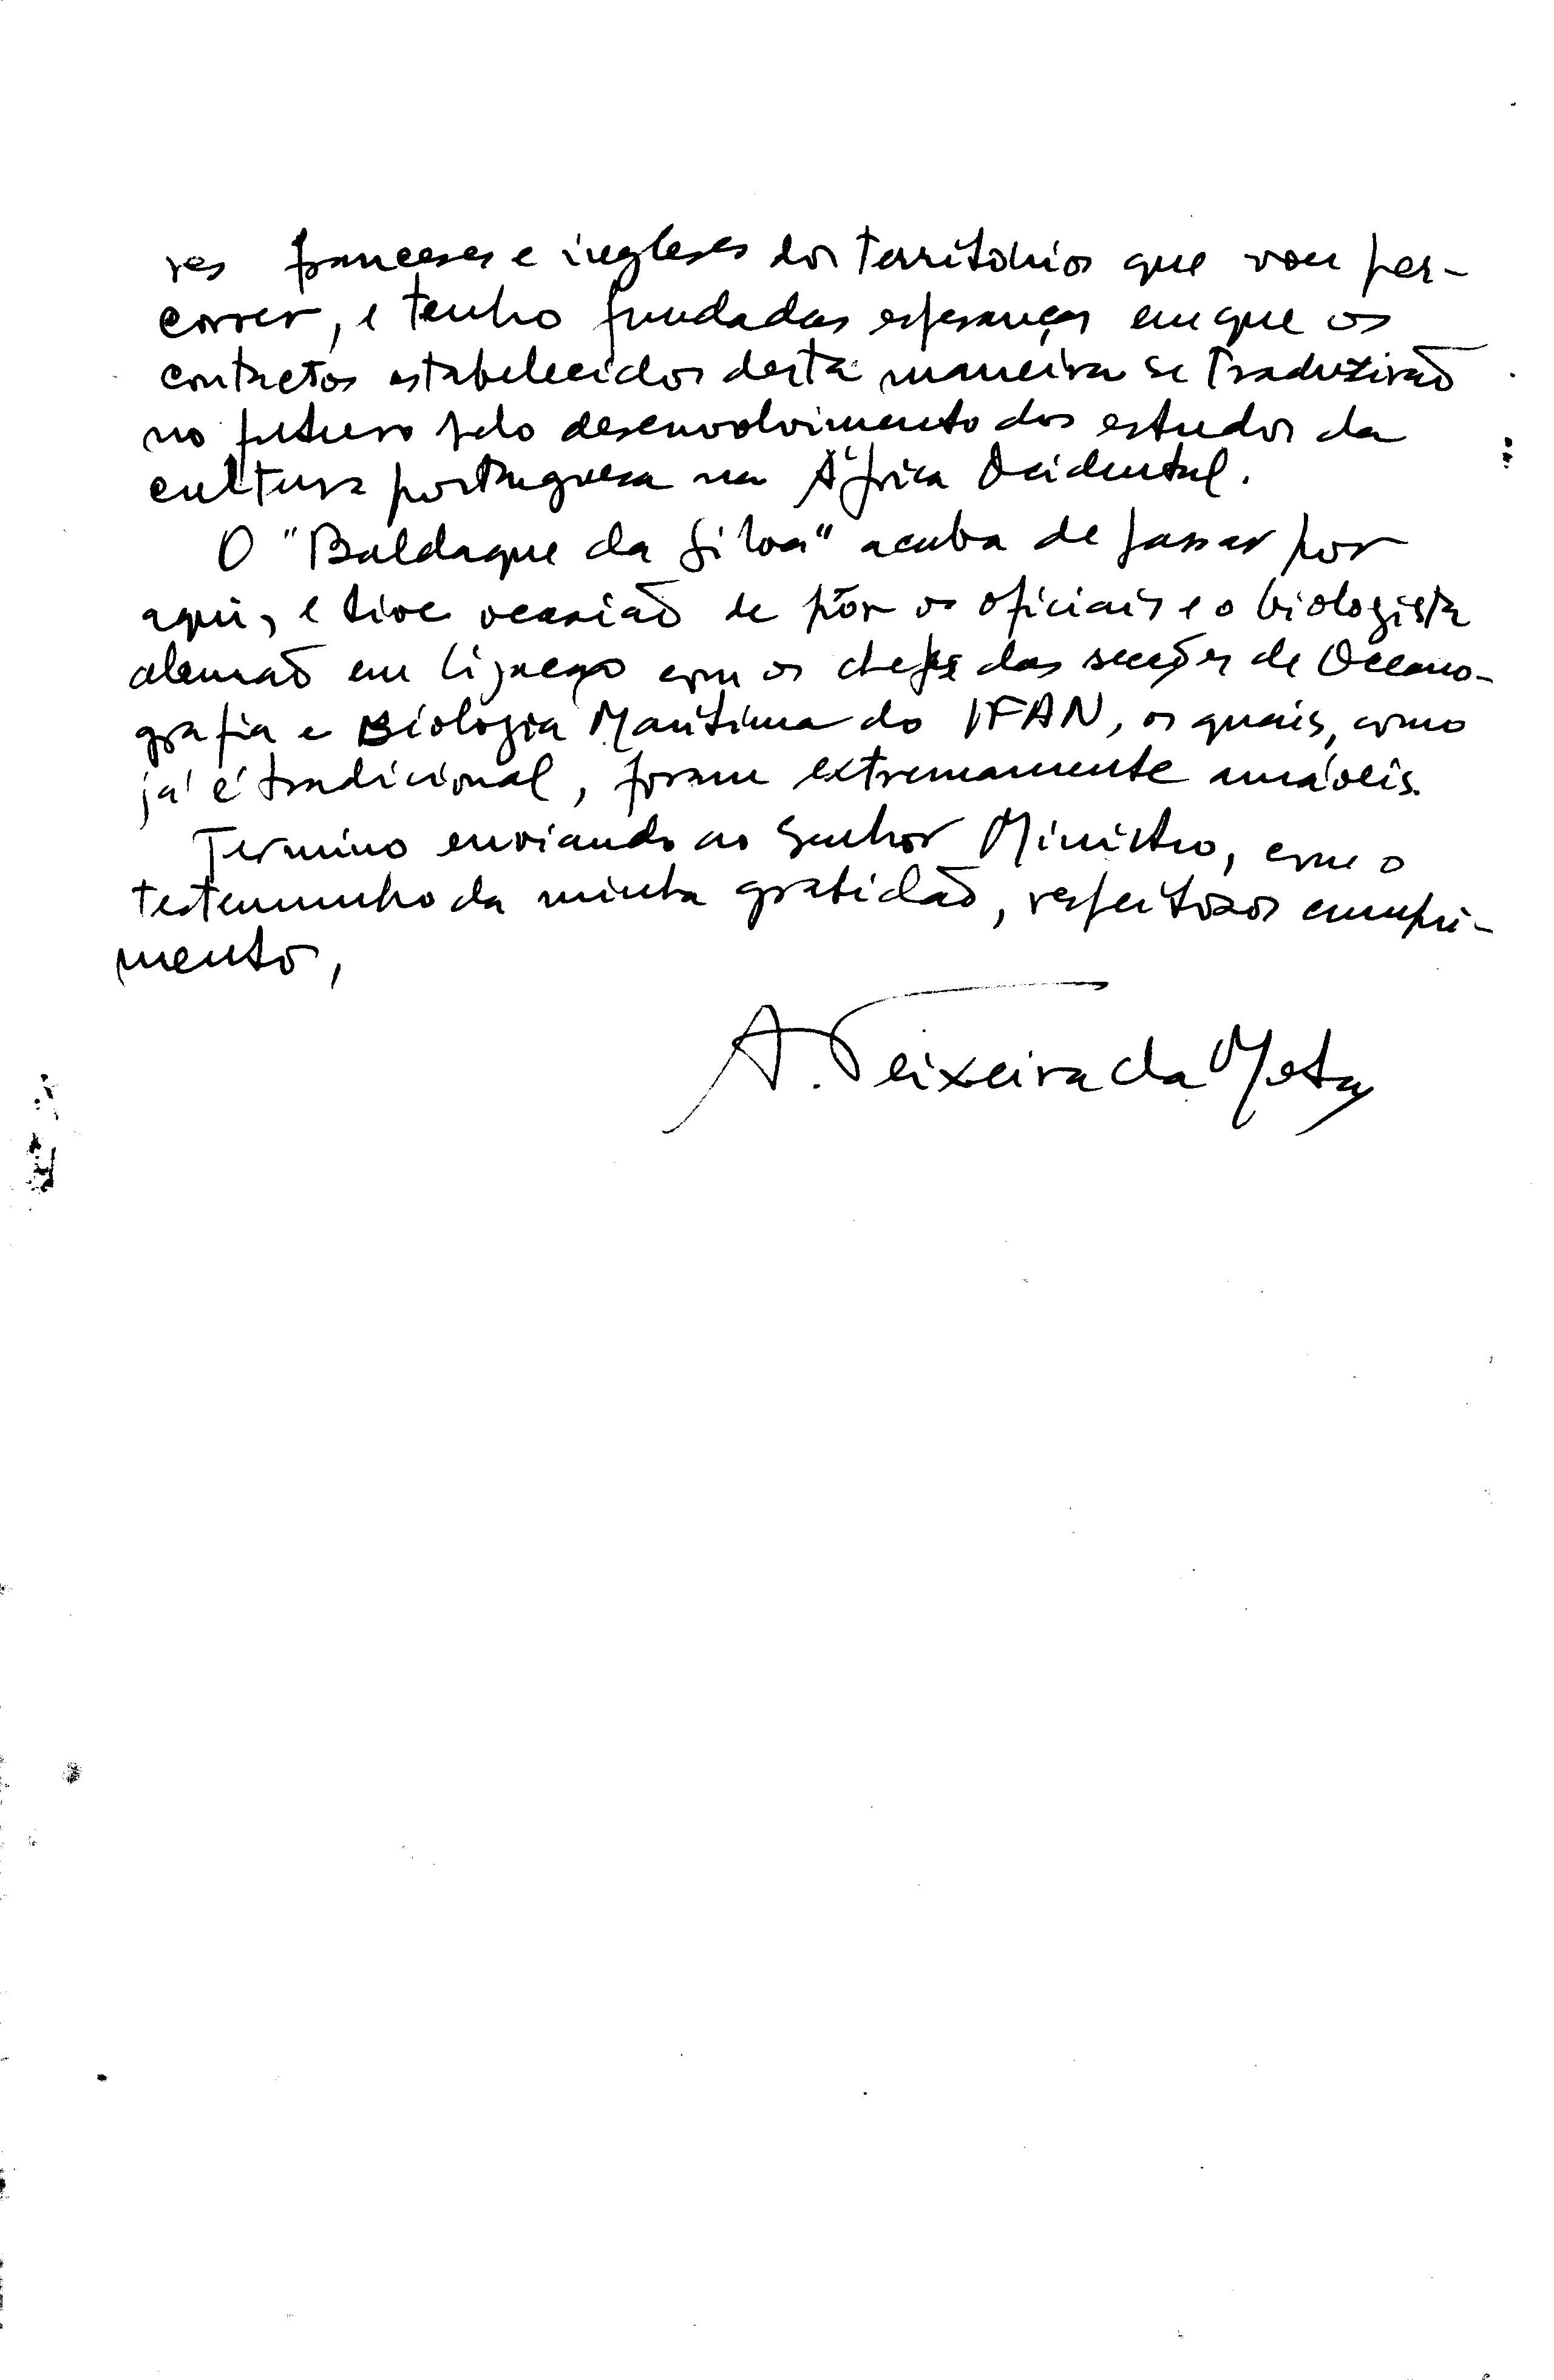 res franceses e ingleses dos territórios que vou per-
correr, e tenho fundadas esperanças em que os
contactos estabelecidos desta maneira se traduzirão
no futuro pelo desenvolvimento dos estudos da
cultura portuguesa na África Ocidental.
O "Baldaque da Silva" acaba de passar por
aqui, e tive ocasião de pôr os oficiais e o biologista
alemão em ligação com os chefes das secções de Oceano-
grafia e Biologia Marítima do IFAN, os quais, como
já é tradicional, foram extremamente amáveis.
Termino enviando ao Senhor Ministro, com o
testemunho da minha gratidão, respeitosos cumpri-
mentos,
A. Teixeira da Mota